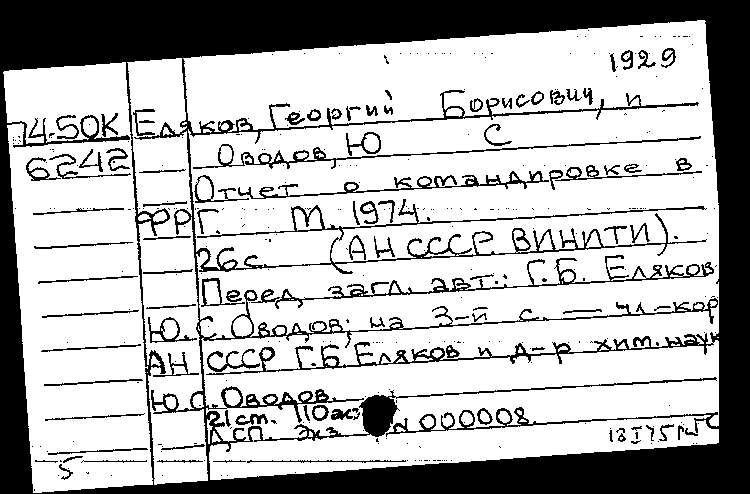 1929
74-50К Еляков, Георгий Борисович, и
6242 Оводов, Ю С
Отчет о командировке в
ФРГ. М., 1974.
26с. (АН СССР. ВИНИТИ).
Перед загл. авт.: Г.Б. Еляков,
Ю.С. Оводов; на 3-й с. — чл.-кор
АН СССР Г.Б. Еляков и д-р хим. наук
Ю.С. Оводов.
21 ст. 110
ДСП. Экз № 000008.
5. 13 I 75